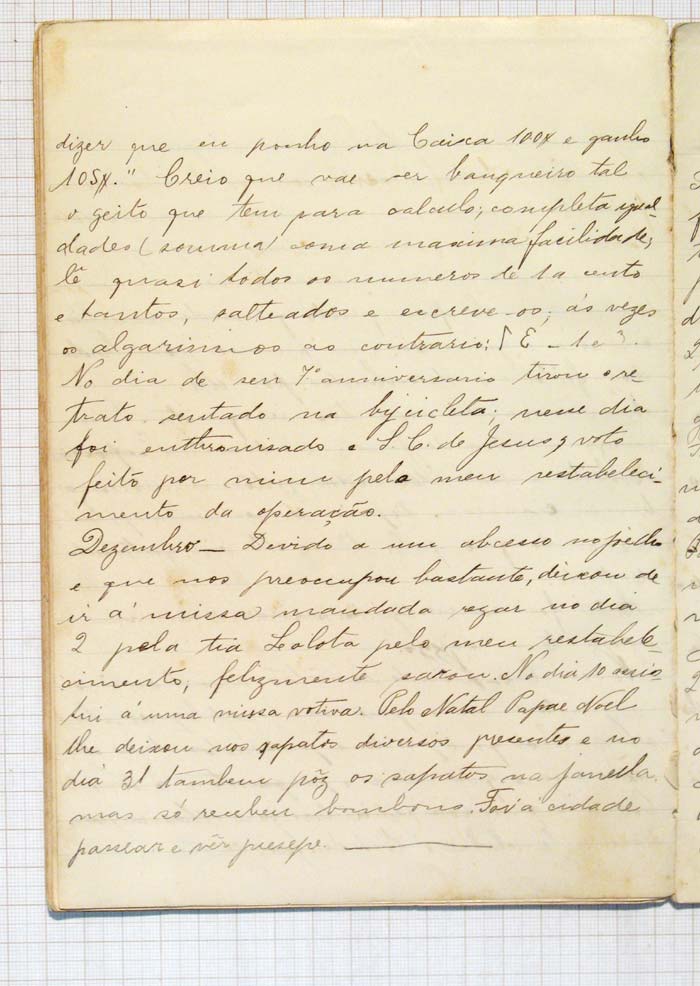 dizer que eu ponho na Caixa 100$ e ganho
105$." Creio que vae ser banqueiro tal
o geito que tem para calculo; completa igual-
dades (somma) com a maxima facilidade;
lê quasi todos os numeros de 1 a cento
e tantos, salteados e escreve-os; ás vezes
os algarismos ao contrario:
No dia de seu 7º anniversario tirou o re-
trato sentado na bycicleta; nesse dia
foi enthronisado o S. C. de Jesus, voto
feito por mim pelo meu restabeleci-
mento da operação.
Dezembro — Devido a um abcesso no peito
e que nos preoccupou bastante, deixou de
ir á missa mandada rezar no dia
2 pela tia Lolota pelo meu restabele-
cimento, felizmente sarou. No dia 10 assis-
tiu á uma missa votiva. Pelo Natal Papae Noel
lhe deixou nos sapatos diversos presentes e no
dia 31 tambem pôz os sapatos na janella
mas só recebeu bombons. Foi á cidade
passear e vêr presepe.